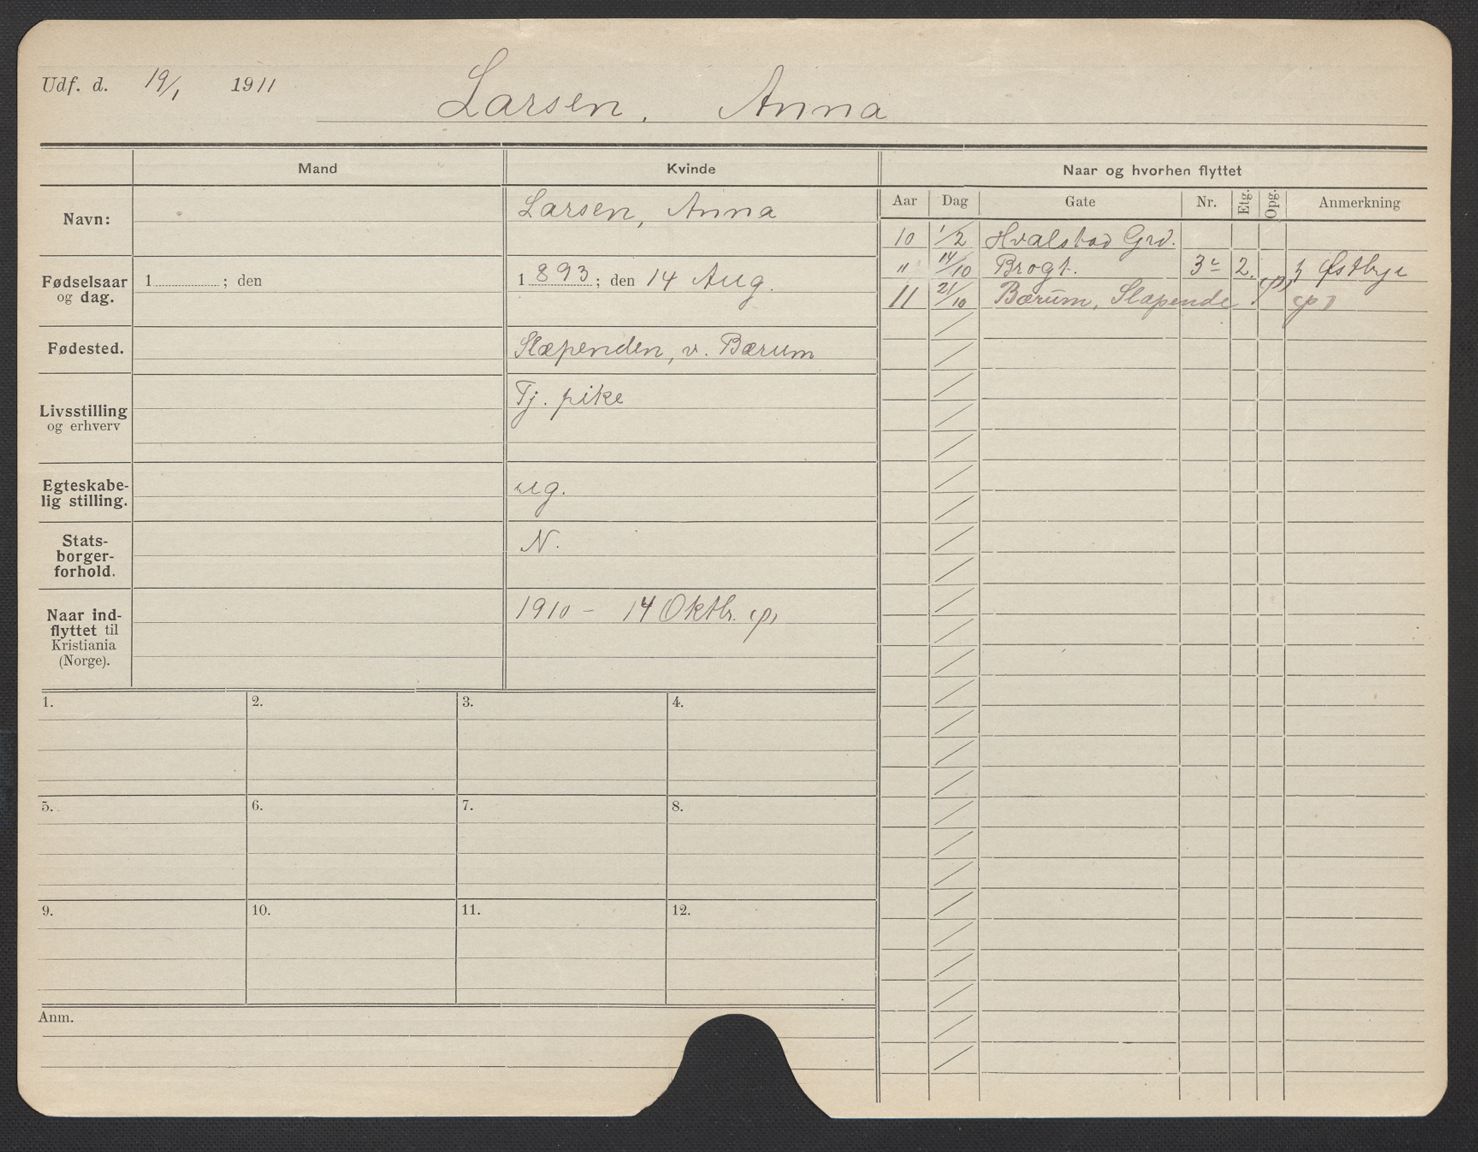 Udf. d. 19/1 1911
Larsen, Anna
Mand
Kvinde
Naar og hvorhen flyttet
Navn:
Larsen, Anna
Fødselsaar
og dag.
1 ; den
1 893 ; den 14 Aug.
Fødested.
Slæpenden, v. Bærum
Livsstilling
og erhverv
Tj. pike
Egteskabe-
lig stilling.
ug.
Stats-
borger-
forhold.
N.
Naar ind-
flyttet til
Kristiania
(Norge).
1910 - 14 Oktbr. (p)
Aar Dag Gate Nr. Etg. Opg. Anmerkning
10 1/2 Hvalstad Grd.
" 14/10 Brogt. 3c 2. Østbye
11 21/10 Bærum, Slæpende (p)
1. 2. 3. 4.
5. 6. 7. 8.
9. 10. 11. 12.
Anm.